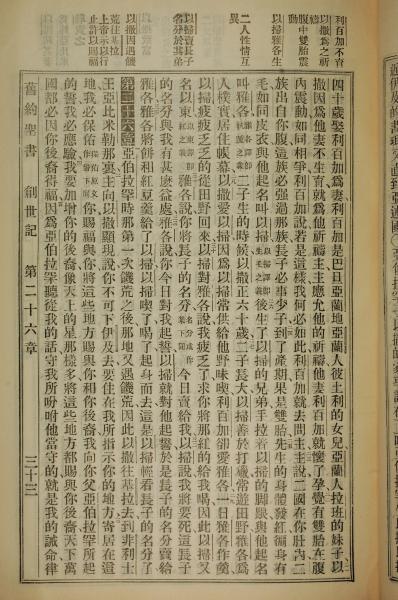 利百加不育
以撒為之祈
禱
腹中雙胎震
動
以掃雅各生
二人性情互
異
以掃賣長子
名分於其弟
以撒因遇饑
荒住基拉耳
上帝示以行
止許以賜福
四十歲娶利百加為妻利百加是巴旦亞蘭地亞蘭人彼土利的女兒亞蘭人拉班的妹子以
撒因為他妻不生育就為他祈禱主主應允他的祈禱他妻利百加就懷了孕覺有雙胎在腹
內震動如同相爭利百加說若是這樣我何必如此利百加就去問主主說二國在你肚內二
族出自你腹這族必強過那族長子必事少子到了產期果是雙胎先生的身體發紅徧身有
毛如同皮衣與他起名叫以掃以掃譯即有毛之義後生了以掃的兄弟手拉着以掃的脚跟與他起名
叫雅各雅各譯即執踵之義二子生的時候以撒正六十歲二子長大以掃善於打獵常遊田野雅各為
人樸實居住帳幕以撒愛以掃因為以掃常供給他野味喫利百加卻愛雅各一日雅各作羹
以掃疲疲乏乏的從田野回來以掃對雅各說我疲乏了求你將那紅的給我喝因此以掃又
名以東以東譯即紅之義雅各說你將長子的名分名分或作業下同今日賣給我以掃說我將要死這長子
的名分與我有甚麼益處雅各說你今日對我起誓以掃就對他起誓於是長子的名分賣給
雅各雅各將餅和紅豆羹給了以掃以掃喫了喝了起身而去這是以掃輕看長子的名分了
第二十六章亞伯拉罕時那第一次饑荒之後那地又遇饑荒因此以撒往基拉耳去到非利士
王亞比米勒那裏主向以撒顯現說你不可下伊及去要住在我所指示你的地方寄居在這
地我必保佑你賜福與你將這些地方賜與你和你後裔我向你父亞伯拉罕所起
的誓我必應驗我要加增你的後裔像天上的星那樣多將這些地方都賜與你後裔天下萬
國都必因你後裔得福因為亞伯拉罕聽從我的話守我所吩咐他當守的就是我的誡命律
舊約聖書 創世記 第二十六章 三十三